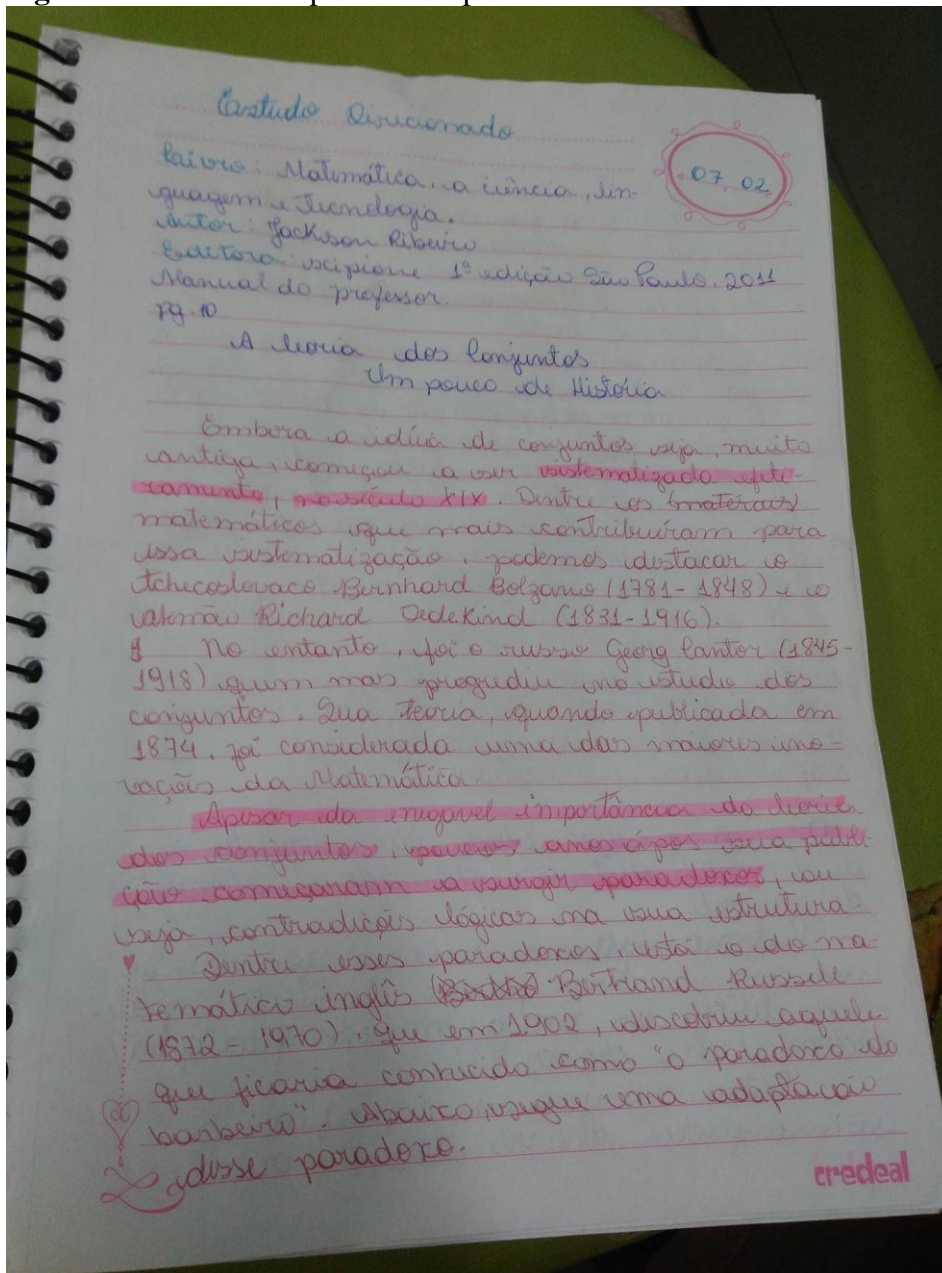 Estudo Direcionado
07 02
Livro: Matemática, a ciência, lin-
guagem e tecnologia.
Autor: Jackson Ribeiro
Editora: scipione 1ª edição São Paulo. 2011
Manual do professor.
pg. 10
A teoria dos Conjuntos
Um pouco de História
Embora a idéia de conjuntos seja, muito
antiga, começou a ser sistematizado efeti-
vamente, no século XIX. Dentre os (materais)
matemáticos que mais contribuíram para
essa sistematização, podemos destacar o
tchecoslovaco Bernhard Bolzano (1781-1848) e o
alemão Richard Dedekind (1831-1916).
No entanto, foi o russo Georg Cantor (1845-
1918) quem mas progrediu no estudo dos
conjuntos. Sua teoria, quando publicada em
1874, foi considerada uma das maiores ino-
vações da Matemática.
Apesar da inegavel importância da teoria
dos conjuntos, poucos anos após sua publi-
ção começaram a surgir paradoxos, ou
seja, contradições lógicas na sua estrutura.
Dentre esses paradoxos, está o do ma-
temático inglês Bertrand Russele
(1872-1970), que em 1902, descobriu aquele
que ficaria conhecido como "o paradoxo do
barbeiro". Abaixo, segue uma adaptação
desse paradoxo.
credeal